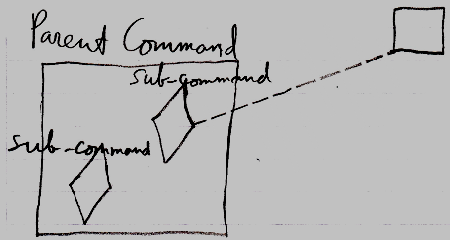 Parent Command
sub-command
sub-command